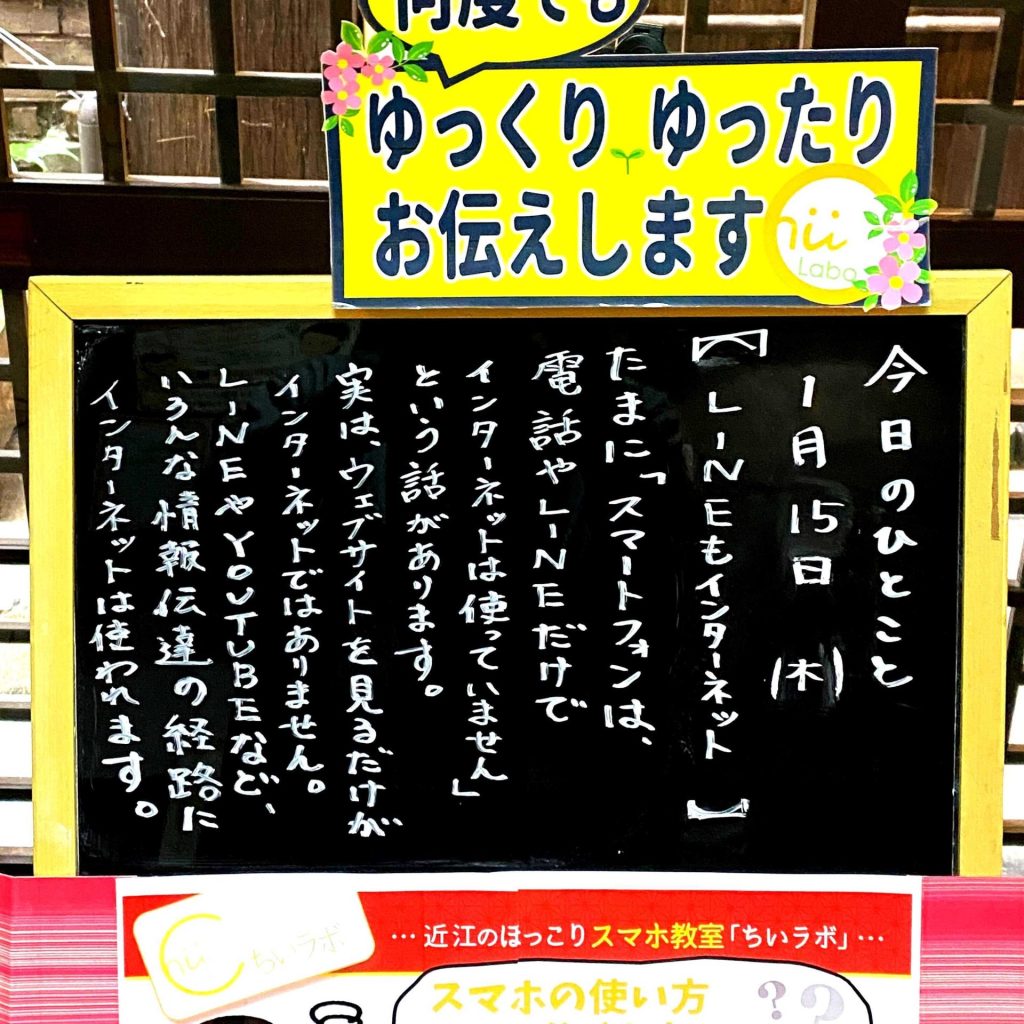 何度でも
ゆっくり ゆったり
お伝えします
hii
Labo
今日のひとこと
1月15日(木)
【LINEもインターネット】
たまに「スマートフォンは、
電話やLINEだけで
インターネットは使っていません」
という話があります。
実は、ウェブサイトを見るだけが
インターネットではありません。
LINEやYOUTUBEなど、
いろんな情報伝達の経路に
インターネットは使われます。
hii
ちいラボ
…近江のほっこりスマホ教室「ちいラボ」…
スマホの使い方
??